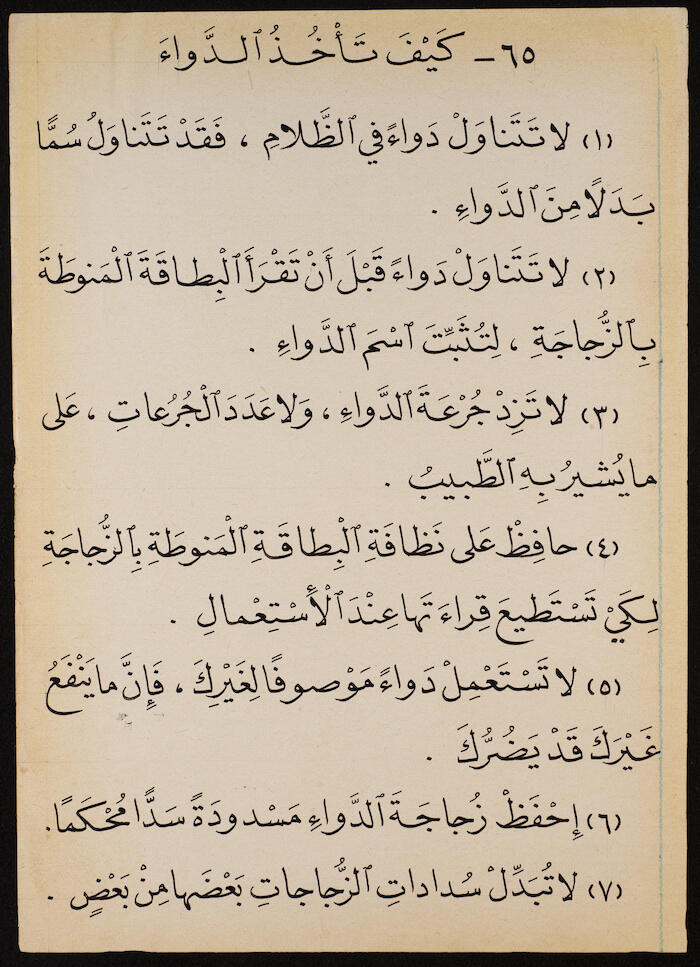 ٦٥ - كَيْفَ تَأْخُذُ ٱلدَّواءَ
(١) لا تَتَناوَلْ دَواءً في ٱلظَّلامِ ، فَقَدْ تَتَناوَلُ سُمًّا
بَدَلًا مِنَ ٱلدَّواءِ .
(٢) لا تَتَناوَلْ دَواءً قَبْلَ أَنْ تَقْرَأَ ٱلْبِطاقَةَ ٱلْمَنوطَةَ
بِٱلزُّجاجَةِ ، لِتُثَبِّتَ ٱسْمَ ٱلدَّواءِ .
(٣) لا تَزِدْ جُرْعَةَ ٱلدَّواءِ ، وَلا عَدَدَ ٱلْجُرُعاتِ ، عَلى
ما يُشيرُ بِهِ ٱلطَّبيبُ .
(٤) حافِظْ عَلى نَظافَةِ ٱلْبِطاقَةِ ٱلْمَنوطَةِ بِٱلزُّجاجَةِ
لِكَيْ تَسْتَطيعَ قِراءَتَها عِنْدَ ٱلْأَسْتِعْمالِ .
(٥) لا تَسْتَعْمِلْ دَواءً مَوْصوفًا لِغَيْرِكَ ، فَإِنَّ ما يَنْفَعُ
غَيْرَكَ قَدْ يَضُرُّكَ .
(٦) إِحْفَظْ زُجاجَةَ ٱلدَّواءِ مَسْدودَةً سَدًّا مُحْكَمًا.
(٧) لا تُبَدِّلْ سُداداتِ ٱلزُّجاجاتِ بَعْضَها مِنْ بَعْضٍ .